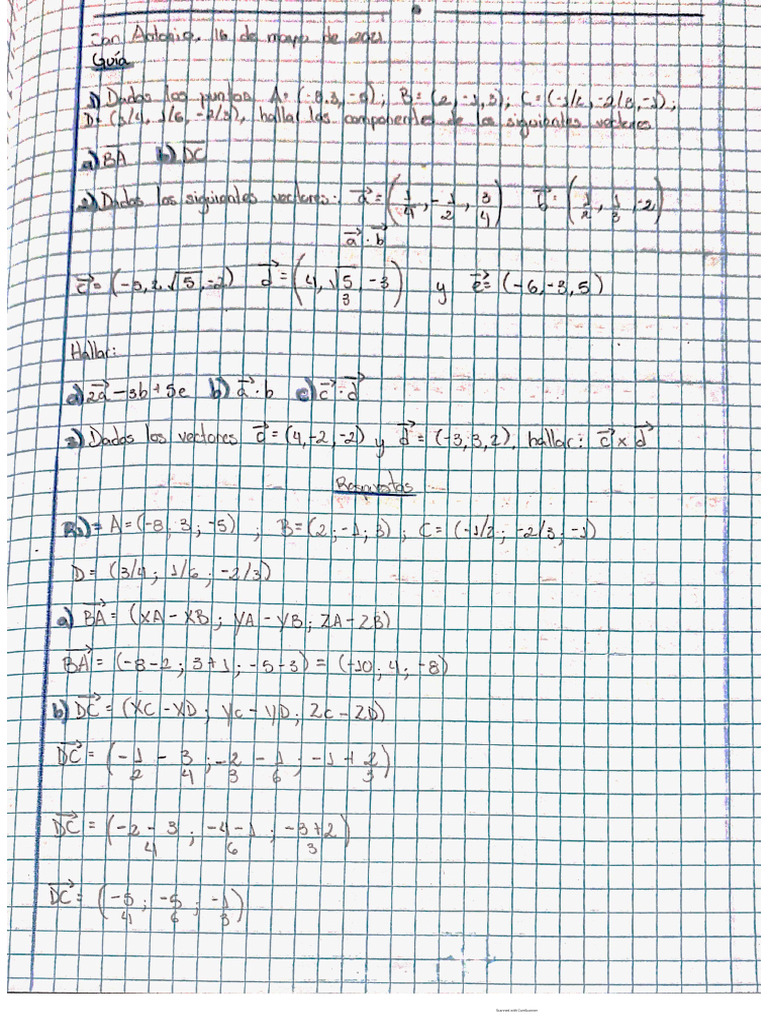 San Antonio, 16 de mayo de 2021
Guía
1) Dados los puntos A= (-8,3,-5); B= (2,-1,3), C= (-1/2,-2/3,-1);
D= (3/4, 1/6, -2/3), hallar las componentes de los siguientes vectores
a) BA b) DC
2) Dados los siguientes vectores: a = (1/4, -1/2, 3/4) b = (1/2, 1/3, -2)
a · b
c = (-5, 2√5, -2) d = (4, √5/3, -3) y e = (-6, -3, 5)
Hallar:
a) 2a - 3b + 5e b) a · b c) c · d
3) Dados los vectores c = (4,-2,-2) y d = (-3,3,2), hallar: c x d
Respuestas
R1)= A= (-8; 3; -5) ; B= (2; -1; 3) ; C= (-1/2; -2/3; -1)
D = (3/4; 1/6; -2/3)
a) BA = (XA - XB; YA - YB; ZA - ZB)
BA = (-8-2; 3+1; -5-3) = (-10; 4; -8)
b) DC = (XC - XD; YC - YD; ZC - ZD)
DC = (-1/2 - 3/4; -2/3 - 1/6; -1 + 2/3)
DC = (-2-3/4; -4-1/6; -3+2/3)
DC = (-5/4; -5/6; -1/3)